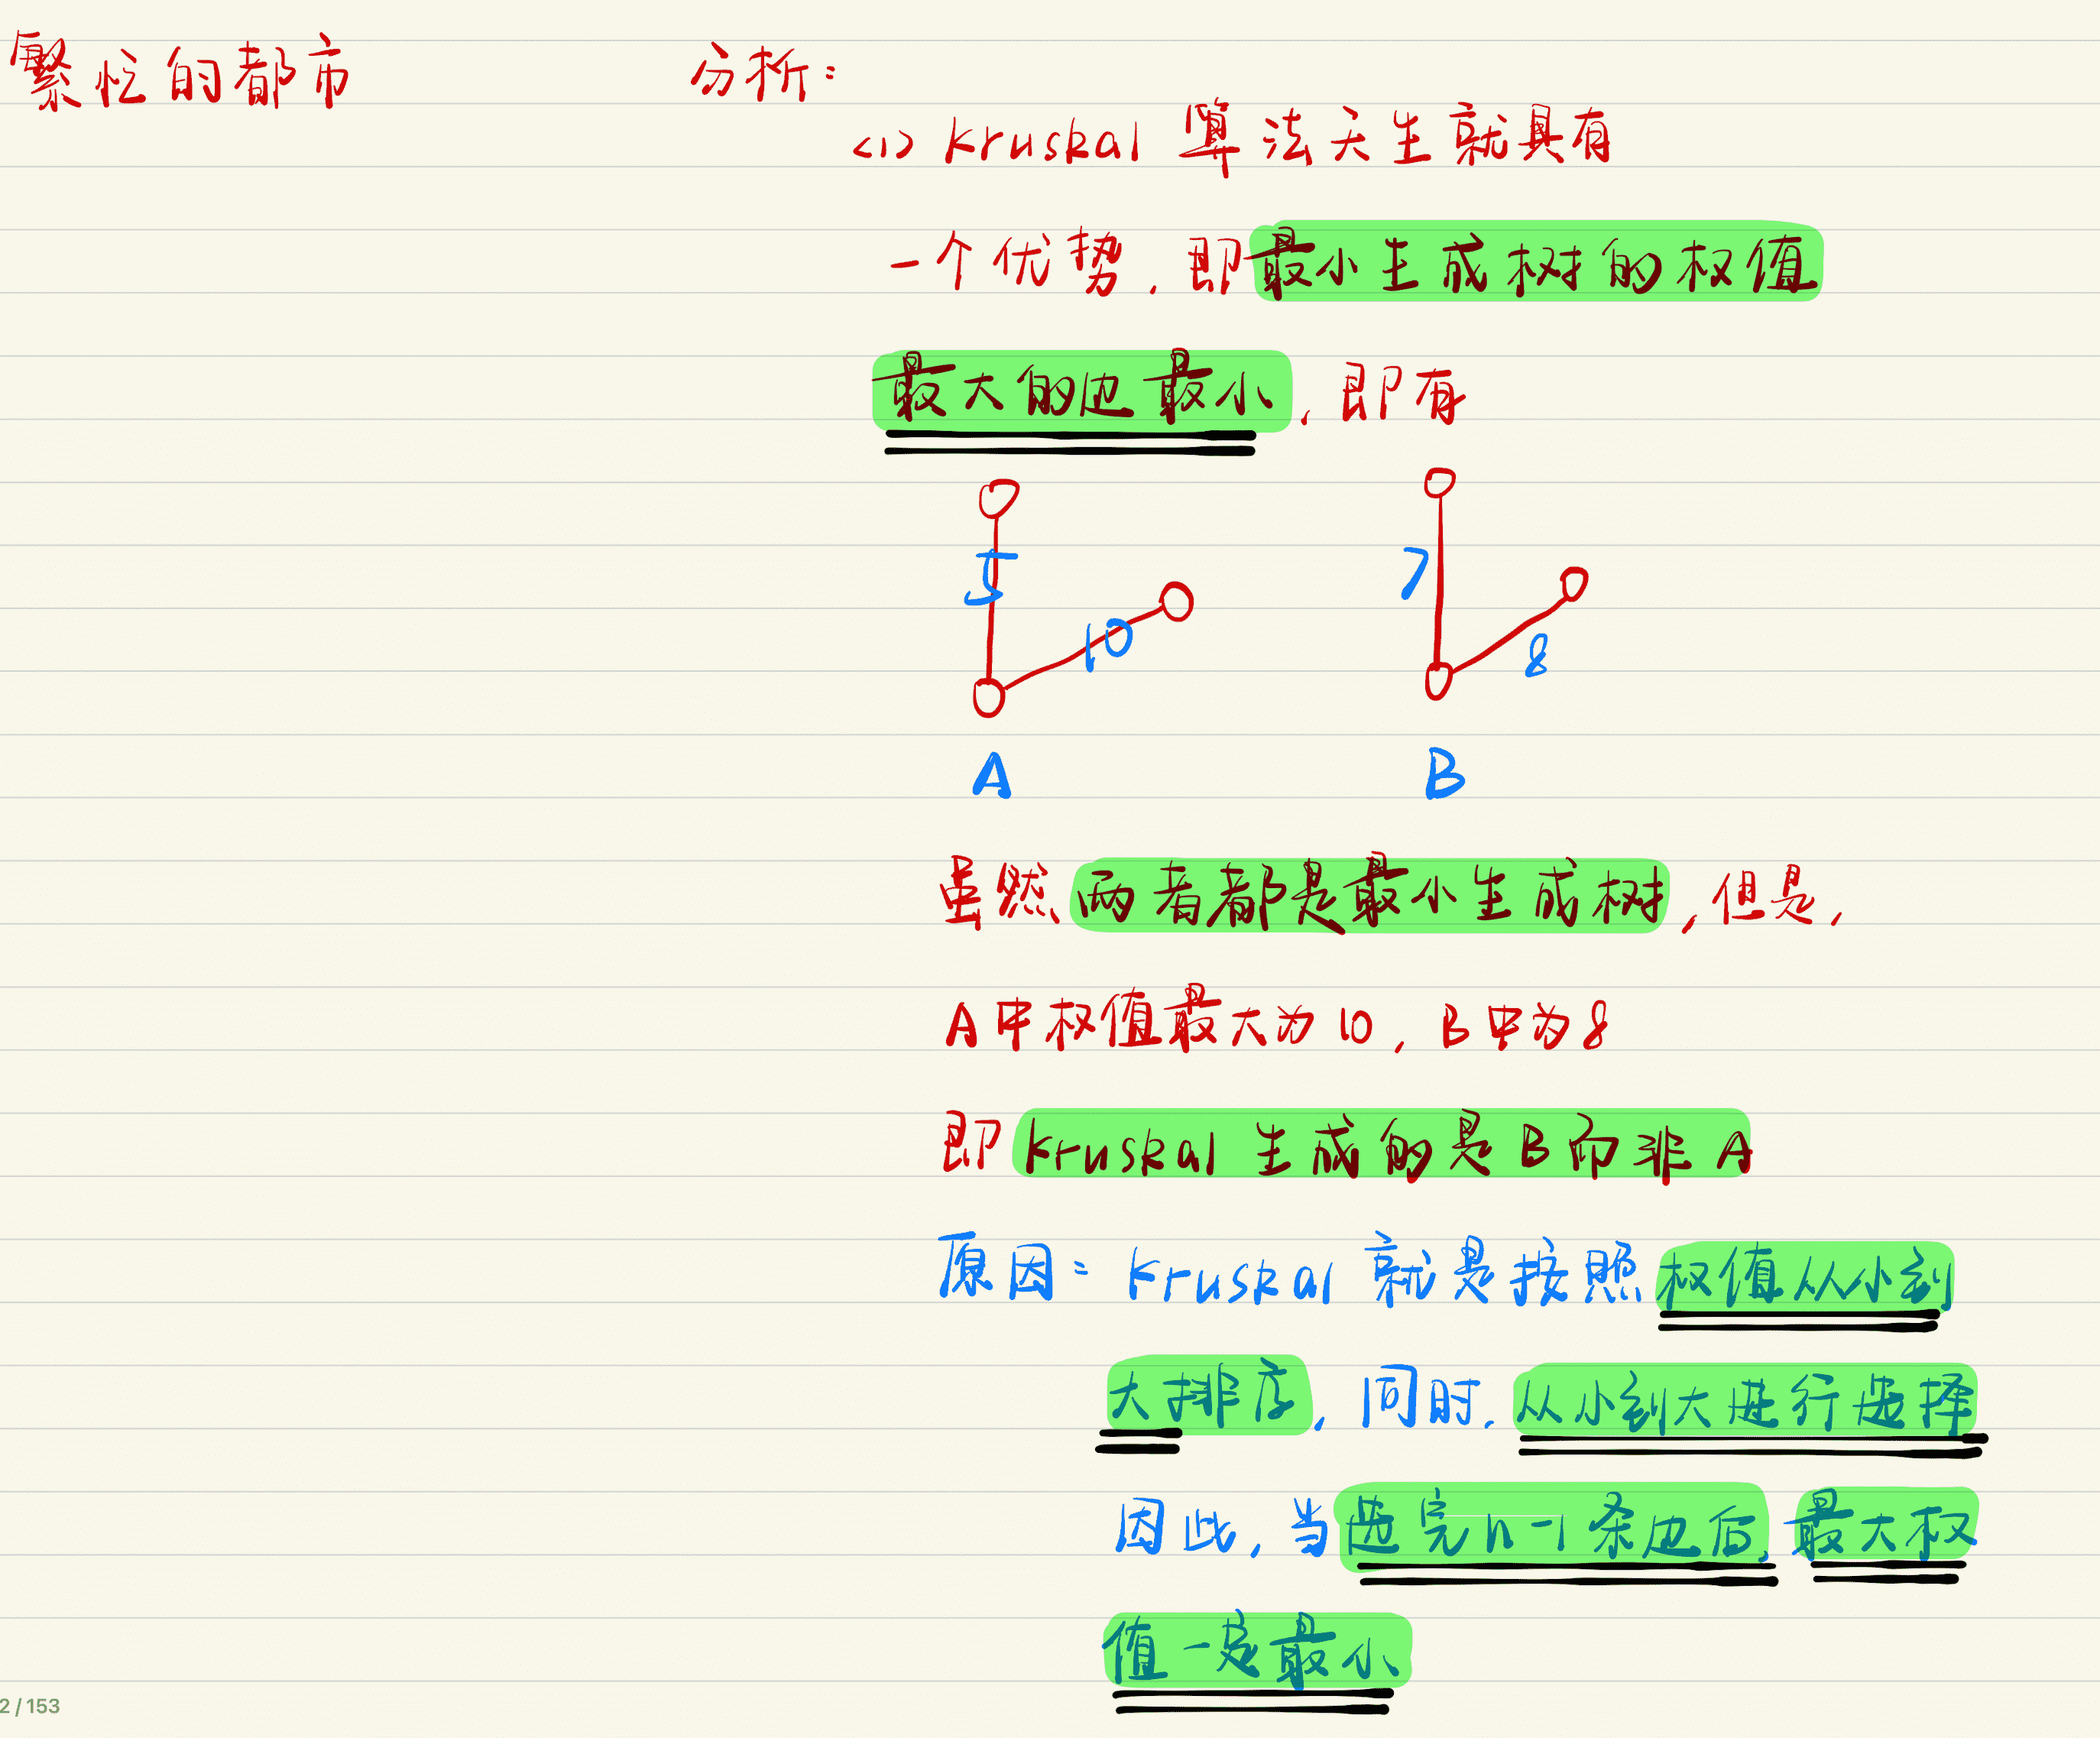 繁忙的都市
分析:
<1> kruskal 算法天生就具有
一个优势,即最小生成树的权值
最大的边最小,即有
5
10
7
8
A
B
虽然两者都是最小生成树,但是,
A中权值最大为10, B中为8
即kruskal 生成的是B而非A
原因: kruskal 就是按照权值从小到
大排序,同时,从小到大进行选择
因此,当选完n-1条边后,最大权
值一定最小
2/153